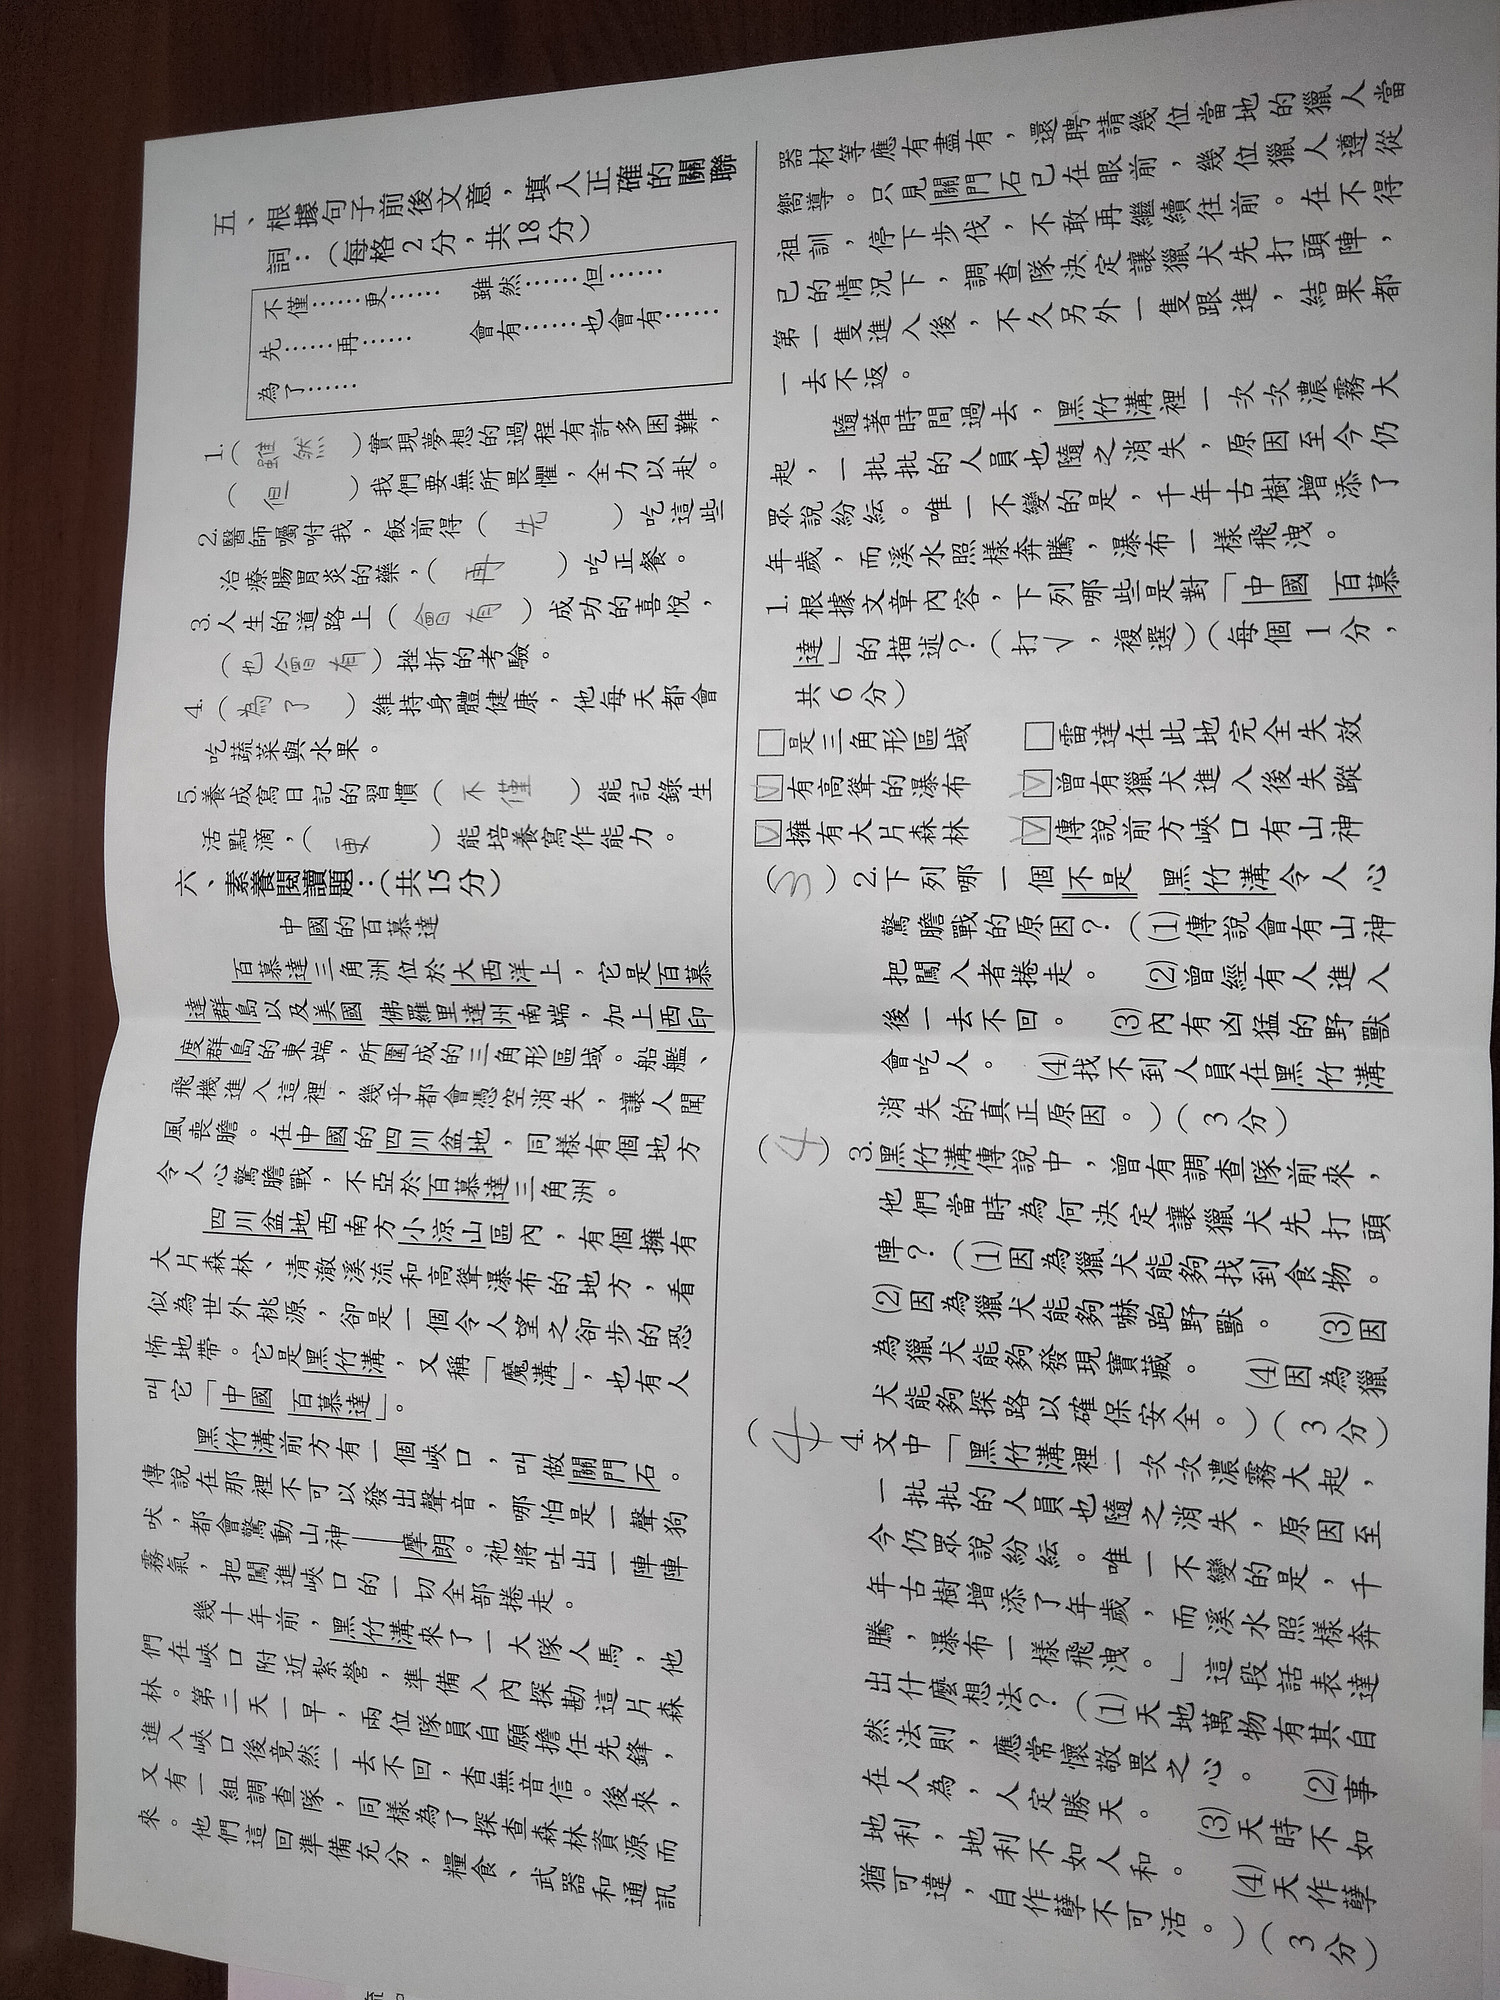 五、根據句子前後文意，填入正確的關聯
詞：（每格2分，共18分）
不僅……更……　雖然……但……
先……再……　會有……也會有……
為了……
1.（雖然）實現夢想的過程有許多困難，
（但）我們要無所畏懼，全力以赴。
2.醫師囑咐我，飯前得（先）吃這些
治療腸胃炎的藥，（再）吃正餐。
3.人生的道路上（會有）成功的喜悅，
（也會有）挫折的考驗。
4.（為了）維持身體健康，他每天都會
吃蔬菜與水果。
5.養成寫日記的習慣（不僅）能記錄生
活點滴，（更）能培養寫作能力。
六、素養閱讀題：（共15分）
中國的百慕達
百慕達三角洲位於大西洋上，它是百慕
達群島以及美國佛羅里達州南端，加上西印
度群島的東端，所圍成的三角形區域。船艦、
飛機進入這裡，幾乎都會憑空消失，讓人聞
風喪膽。在中國的四川盆地，同樣有個地方
令人心驚膽戰，不亞於百慕達三角洲。
四川盆地西南方小涼山區內，有個擁有
大片森林、清澈溪流和高聳瀑布的地方，看
似為世外桃源，卻是一個令人望之卻步的恐
怖地帶。它是黑竹溝，又稱「魔溝」，也有人
叫它「中國百慕達」。
黑竹溝前方有一個峽口，叫做關門石。
傳說在那裡不可以發出聲音，哪怕是一聲狗
吠，都會驚動山神──摩朗。祂將吐出一陣陣
霧氣，把闖進峽口的一切全部捲走。
幾十年前，黑竹溝來了一大隊人馬，他
們在峽口附近紮營，準備入內探勘這片森
林。第二天一早，兩位隊員自願擔任先鋒，
進入峽口後竟然一去不回，杳無音信。後來，
又有一組調查隊，同樣為了探查森林資源而
來。他們這回準備充分，糧食、武器和通訊
器材等應有盡有，還聘請幾位當地的獵人當
嚮導。只見關門石已在眼前，幾位獵人遵從
祖訓，停下步伐，不敢再繼續往前。在不得
已的情況下，調查隊決定讓獵犬先打頭陣，
第一隻進入後，不久另外一隻跟進，結果都
一去不返。
隨著時間過去，黑竹溝裡一次次濃霧大
起，一批批的人員也隨之消失，原因至今仍
眾說紛紜。唯一不變的是，千年古樹增添了
年歲，而溪水照樣奔騰，瀑布一樣飛洩。
1.根據文章內容，下列哪些是對「中國百慕
達」的描述？（打√，複選）（每個1分，
共6分）
□是三角形區域　□雷達在此地完全失效
☑有高聳的瀑布　☑曾有獵犬進入後失蹤
☑擁有大片森林　☑傳說前方峽口有山神
（3）2.下列哪一個不是黑竹溝令人心
驚膽戰的原因？（(1)傳說會有山神
把闖入者捲走。　(2)曾經有人進入
後一去不回。　(3)內有凶猛的野獸
會吃人。　(4)找不到人員在黑竹溝
消失的真正原因。）（3分）
（4）3.黑竹溝傳說中，曾有調查隊前來，
他們當時為何決定讓獵犬先打頭
陣？（(1)因為獵犬能夠找到食物。
(2)因為獵犬能夠嚇跑野獸。　(3)因
為獵犬能夠發現寶藏。　(4)因為獵
犬能夠探路以確保安全。）（3分）
（4 4.文中「黑竹溝裡一次次濃霧大起，
一批批的人員也隨之消失，原因至
今仍眾說紛紜。唯一不變的是，千
年古樹增添了年歲，而溪水照樣奔
騰，瀑布一樣飛洩。」這段話表達
出什麼想法？（(1)天地萬物有其自
然法則，應常懷敬畏之心。　(2)事
在人為，人定勝天。　(3)天時不如
地利，地利不如人和。　(4)天作孽
猶可違，自作孽不可活。）（3分）